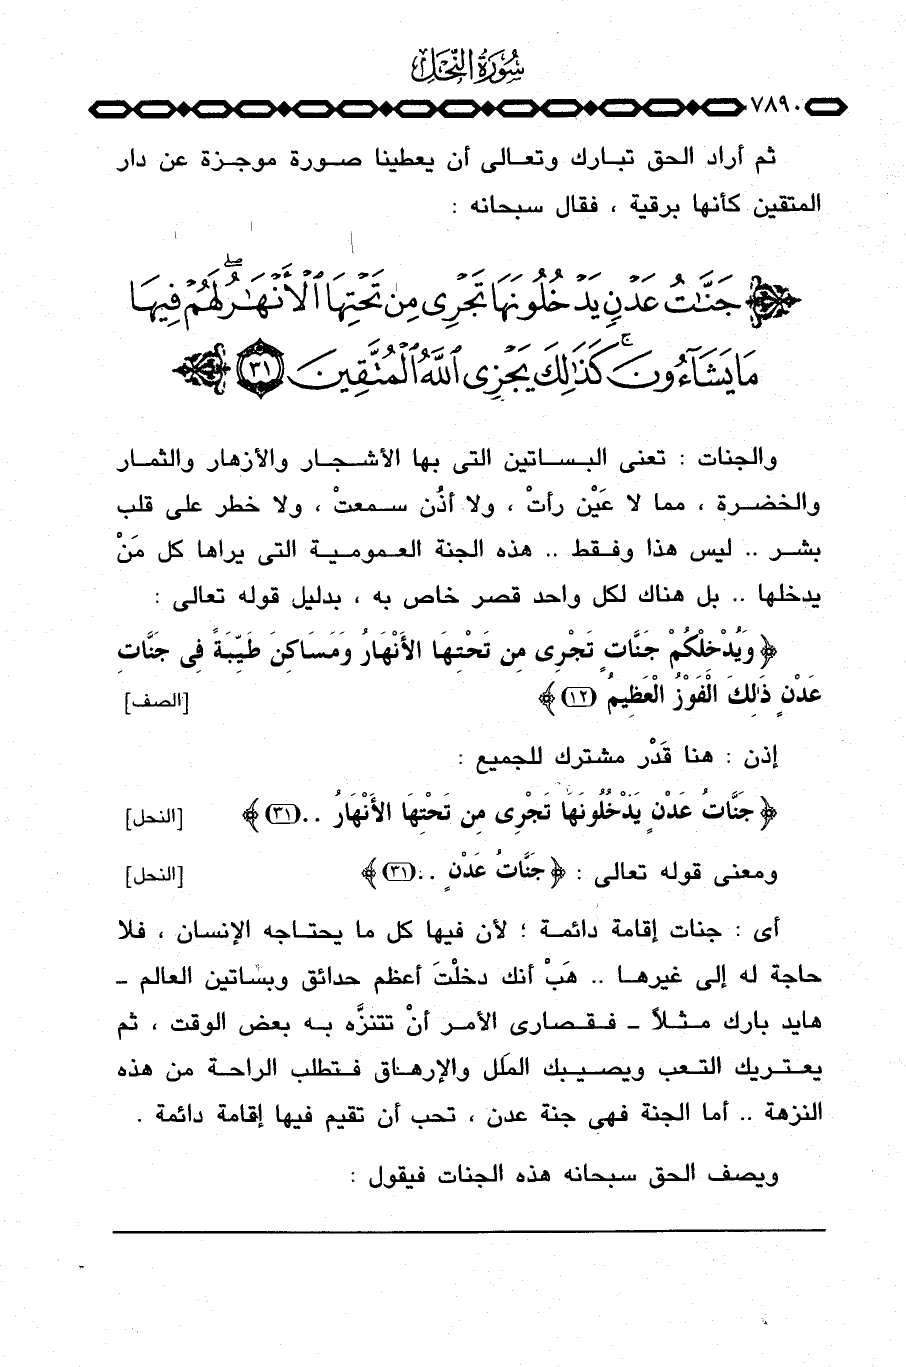 سُورَةُ النَّحْلِ
٧٨٩٠
ثم أراد الحق تبارك وتعالى أن يعطينا صورة موجزة عن دار
المتقين كأنها برقية ، فقال سبحانه :
جَنَّٰتُ عَدْنٍ يَدْخُلُونَهَا تَجْرِى مِن تَحْتِهَا ٱلْأَنْهَٰرُ ۖ لَهُمْ فِيهَا
مَا يَشَآءُونَ ۚ كَذَٰلِكَ يَجْزِى ٱللَّهُ ٱلْمُتَّقِينَ ٣١
والجنات : تعنى البساتين التى بها الأشجار والأزهار والثمار
والخضرة ، مما لا عَيْن رأتْ ، ولا أذُن سمعتْ ، ولا خطر على قلب
بشر .. ليس هذا وفقط .. هذه الجنة العمومية التى يراها كل مَنْ
يدخلها .. بل هناك لكل واحد قصر خاص به ، بدليل قوله تعالى :
﴿ وَيُدْخِلْكُمْ جَنَّاتٍ تَجْرِى مِن تَحْتِهَا الأَنْهَارُ وَمَسَاكِنَ طَيِّبَةً فِى جَنَّاتِ
عَدْنٍ ذَلِكَ الْفَوْزُ الْعَظِيمُ (١٢) ﴾ [الصف]
إذن : هنا قَدْر مشترك للجميع :
﴿ جَنَّاتُ عَدْنٍ يَدْخُلُونَهَا تَجْرِى مِن تَحْتِهَا الأَنْهَارُ ..(٣١) ﴾ [النحل]
ومعنى قوله تعالى : ﴿ جَنَّاتُ عَدْنٍ ..(٣١) ﴾ [النحل]
أى : جنات إقامة دائمة ؛ لأن فيها كل ما يحتاجه الإنسان ، فلا
حاجة له إلى غيرها .. هَبْ أنك دخلْتَ أعظم حدائق وبساتين العالم -
هايد بارك مثلاً - فقصارى الأمر أنْ تتنزَّه به بعض الوقت ، ثم
يعتريك التعب ويصيبك الملَل والإرهاق فتطلب الراحة من هذه
النزهة .. أما الجنة فهى جنة عدن ، تحب أن تقيم فيها إقامة دائمة .
ويصف الحق سبحانه هذه الجنات فيقول :